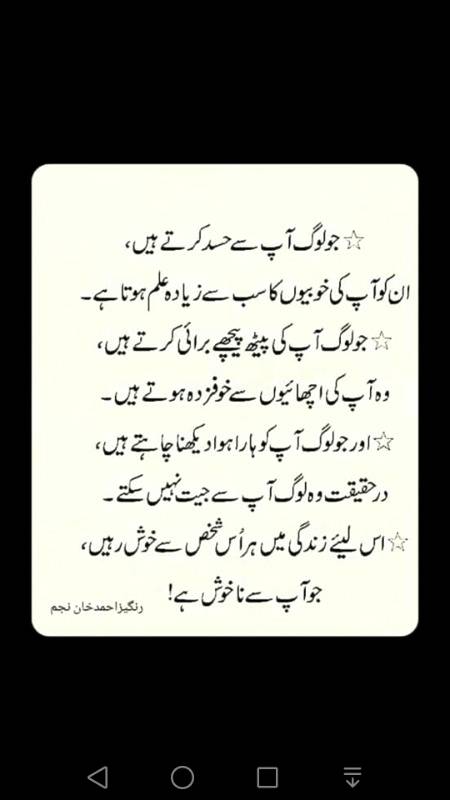 ☆ جو لوگ آپ سے حسد کرتے ہیں،
ان کو آپ کی خوبیوں کا سب سے زیادہ علم ہوتا ہے۔
☆ جو لوگ آپ کی پیٹھ پیچھے برائی کرتے ہیں،
وہ آپ کی اچھائیوں سے خوفزدہ ہوتے ہیں۔
☆ اور جو لوگ آپ کو ہارا ہوا دیکھنا چاہتے ہیں،
درحقیقت وہ لوگ آپ سے جیت نہیں سکتے۔
☆ اس لیئے زندگی میں ہر اُس شخص سے خوش رہیں،
جو آپ سے ناخوش ہے!
رنگیزاحمدخان نجم